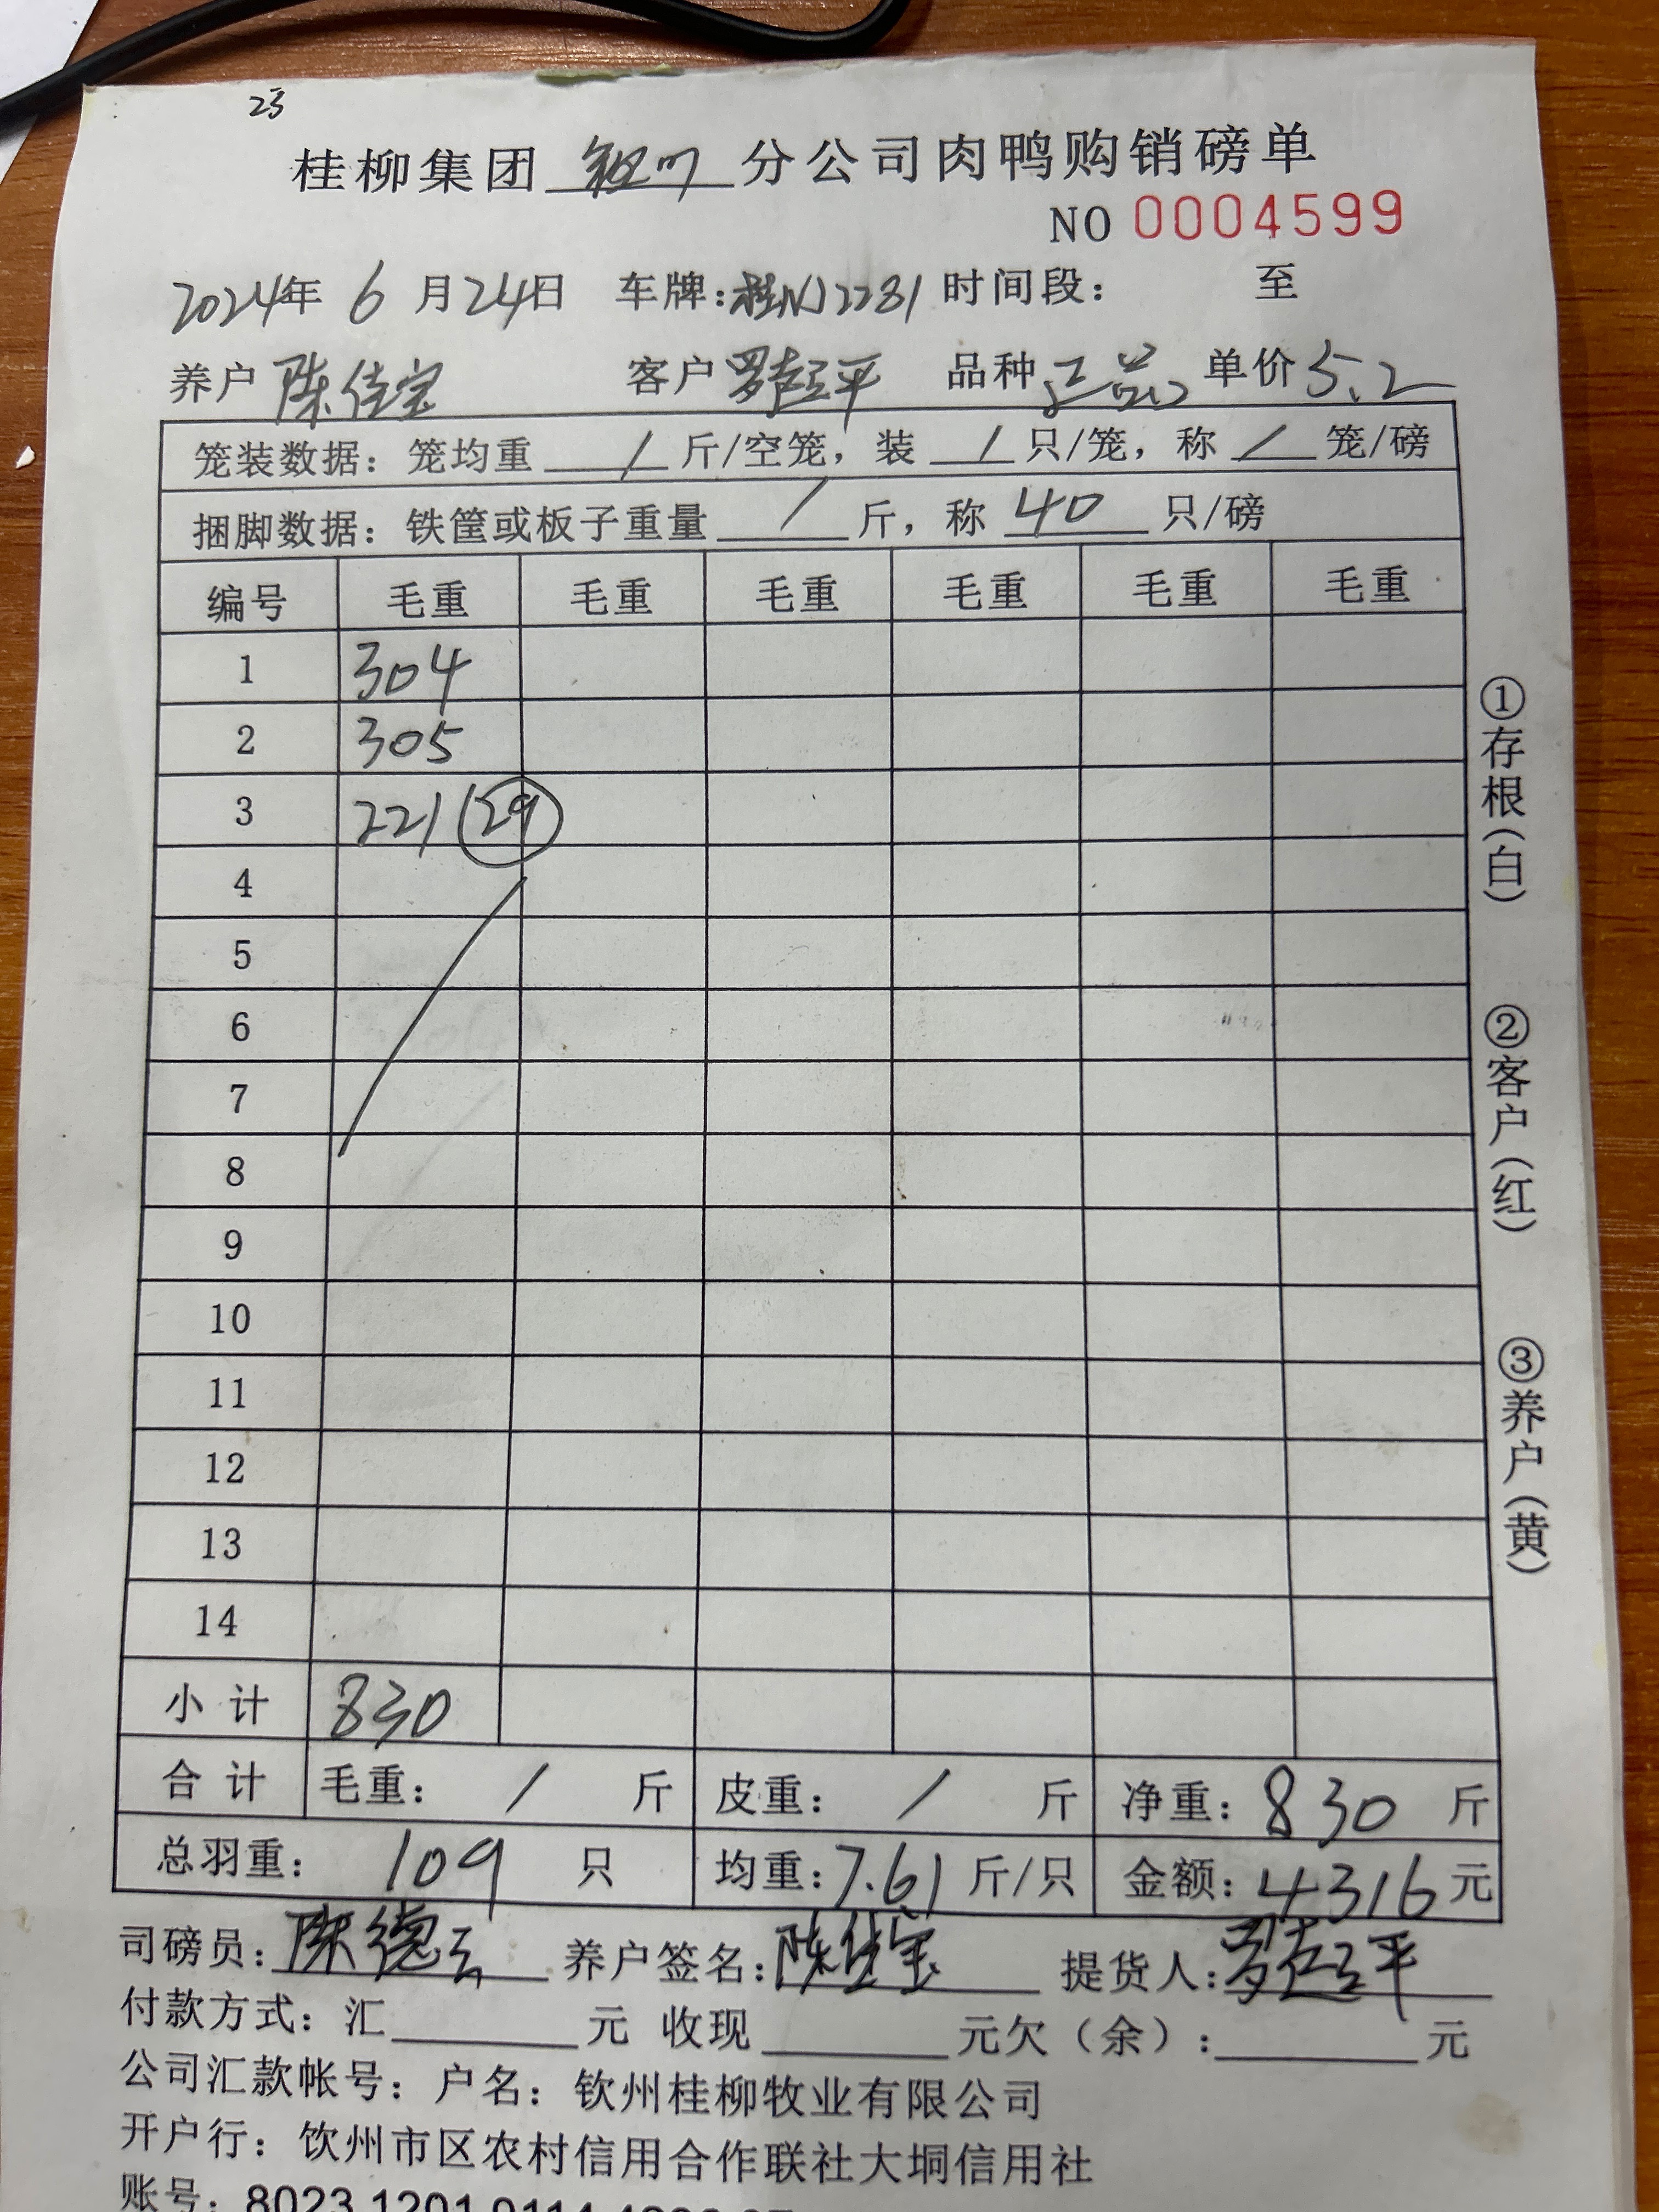 23
桂柳集团 钦州 分公司肉鸭购销磅单
NO 0004599
2024年 6 月24日 车牌:桂NJ2281 时间段: 至
养户 陈佳宝 客户 罗起平 品种 正品 单价 5.2
笼装数据:笼均重 / 斤/空笼,装 / 只/笼,称 / 笼/磅
捆脚数据:铁筐或板子重量 / 斤,称 40 只/磅
编号 毛重 毛重 毛重 毛重 毛重 毛重
1 304
2 305
3 221 (29)
4
5
6
7
8
9
10
11
12
13
14
小 计 830
合 计 毛重: / 斤 皮重: / 斤 净重: 830 斤
总羽重: 109 只 均重:7.61 斤/只 金额:4316元
司磅员:陈德 养户签名:陈佳宝 提货人:罗起平
付款方式:汇 元 收现 元欠(余): 元
公司汇款帐号:户名:钦州桂柳牧业有限公司
开户行:钦州市区农村信用合作联社大垌信用社
账号:8023 1201 0114
①存根(白)
②客户(红)
③养户(黄)